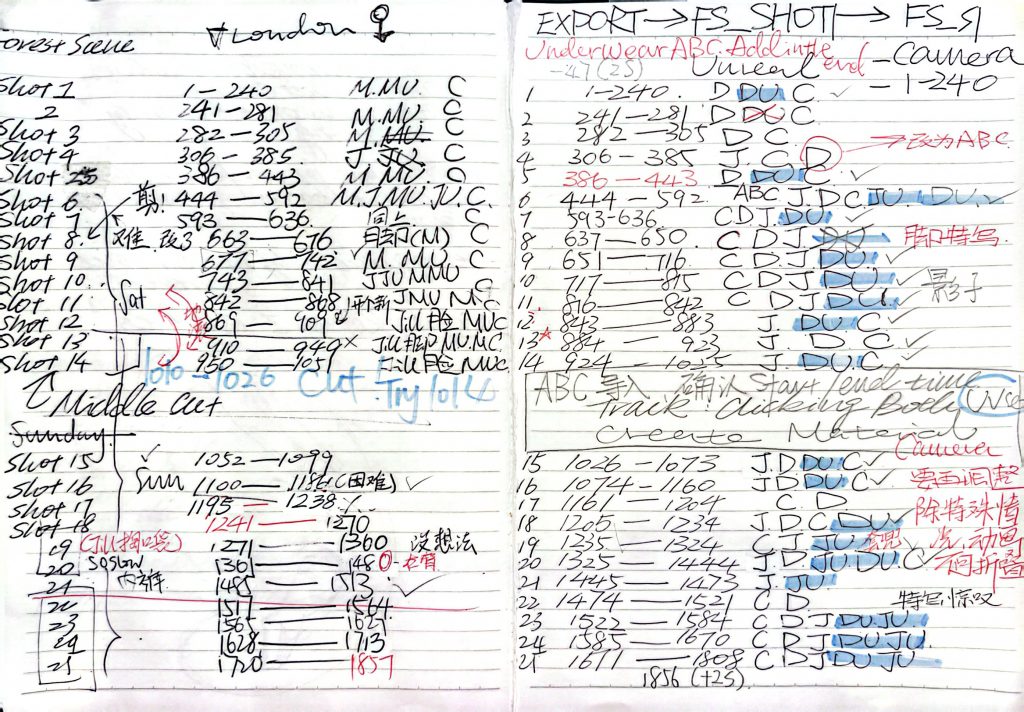 Forest Scene
London
Shot 1 1-240 M.MU. C
2 241-281 M.MU. C
Shot 3 282-305 M.MU. C
Shot 4 306-385 J.JU C
Shot 5 386-443 M.MU. C
Shot 6 剪! 444-592 M.J.MU.JU.C.
Shot 7 593-636 同上 C
Shot 8. 难 改了 663-676 (M) C
Shot 9 677-742 M.MU C
Shot 10. 743-841 JJUMMU
Slot 11 Sat 842-868 JMU M
Shot 12 869-909 Jill 脸 MUC
Shot 13 910-949 × Jill MU.MC
Shot 14 950-1051 Jill 脸 MUC
1010-1026 Cut. Try
Middle Cut
Sunday
Shot 15 1052-1099
Slot 16 Sun 1100-1194 (困难)
slot 17 1195-1238
Slot 18 1241-1270
19 (Jill掏口袋) 1271-1360 没想法
20 1361-1480
21 1485-1513
22 1517-1564
23 1565-1627
24 1628-1713
25 1720-1857
EXPORT → FS_SHOT1 → FS_Я
UnderWear ABC. Add in the end
-47 (25) Unreal - Camera
- 1-240
1 1-240. D DU. C
2 241-281 D DU C
3 282-305 D C
4 306-385 J. C D → 改为ABC
5 386-443 D.DU C
6 444-592 ABC J.D.C JU DU.
7 593-636. C D J. DU
8 637-650 C D J. DU 特写
9 651-716 C D. J. DU
10 717-815 C D J. DU 影子
11 816-842 C D J. DU.
12. 843-883 J. DU C.
13 884-923 J. C
14 924-1025 J. DU. C
ABC 导入 确认 Start/end time UVSC
Track. Clicking Body
Create Material
Camera
15 1026-1073 J.D DU C
16 1074-1160 J D DU C
17 1161-1204 C D
18 1205-1234 J.D C DU 除特殊情
19 1235-1324 C J. JU 况,动画
20 1325-1444 J. D. JU DU. C
21 1445-1473 J. JU
22 1474-1521 C D
23 1522-1584 C D J DU JU.
24 1585-1670 C D J DU JU
25 1671-1808 C D J DU JU
1856 (+25)